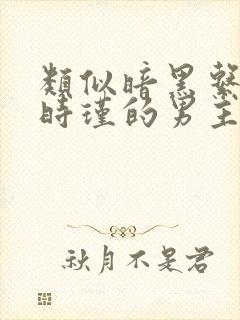 類似暗黑繫
時瑾的男主
秋月不是君